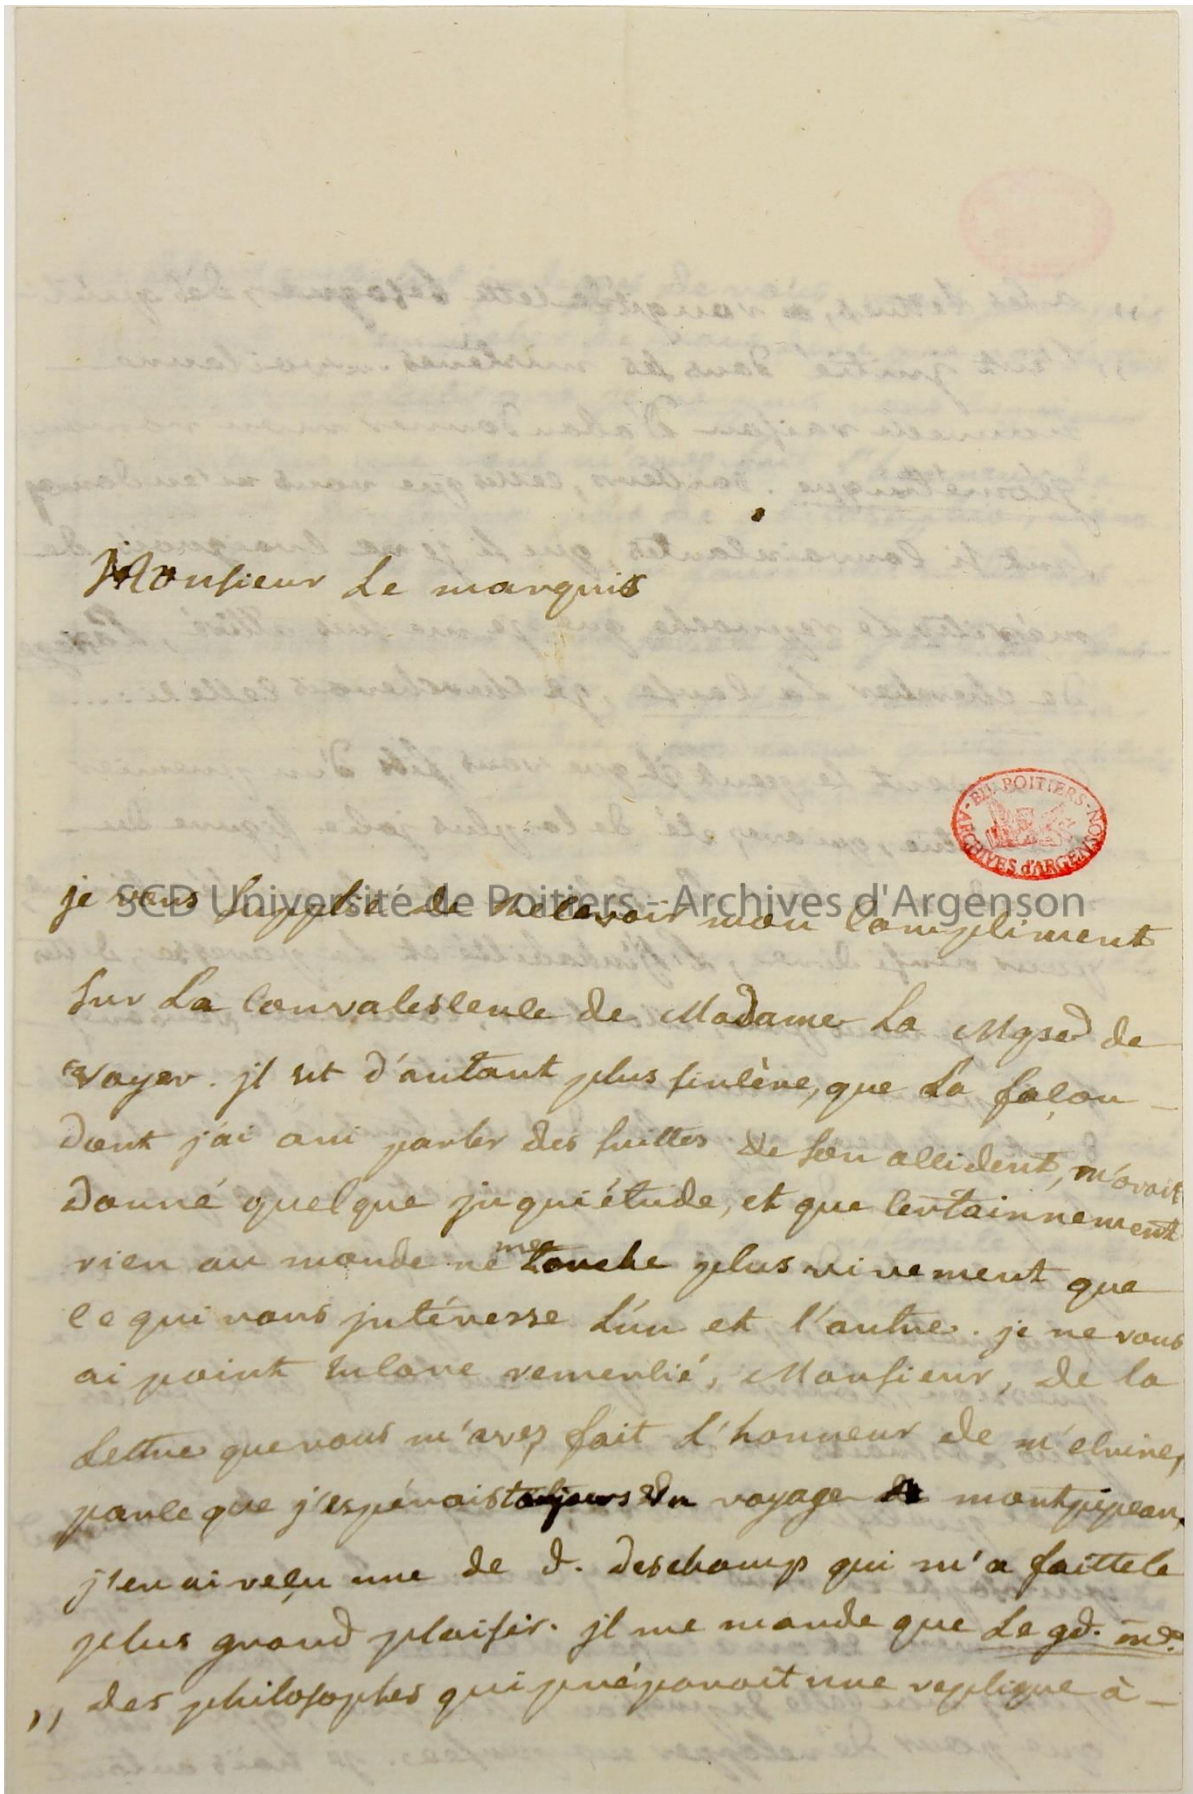 Monsieur Le marquis
BU. POITIERS - ARCHIVES d'ARGENSON
SCD Université de Poitiers - Archives d'Argenson
je vous supplie de recevoir mon compliment
sur La convalescence de Madame La Mqse de
voyer. jl est d'autant plus sincère, que La façon
dont j'ai oui parler des suittes de son accident, m'avoit
donné quelque jnquiétude, et que certainnement
rien au monde ne me touche plus vivement que
ce qui vous jntéresse L'un et l'autre. je ne vous
ai point encore remercié, Monsieur, de la
Lettre que vous m'avez fait L'honneur de m'ecrire,
parce que j'espérois toujours un voyage montpipeau.
j'en ai reçu une de d. Deschamp qui m'a faitte le
plus grand plaisir. jl me mande que Le gd. me.
,, des philosophes qui préparoit une replique à